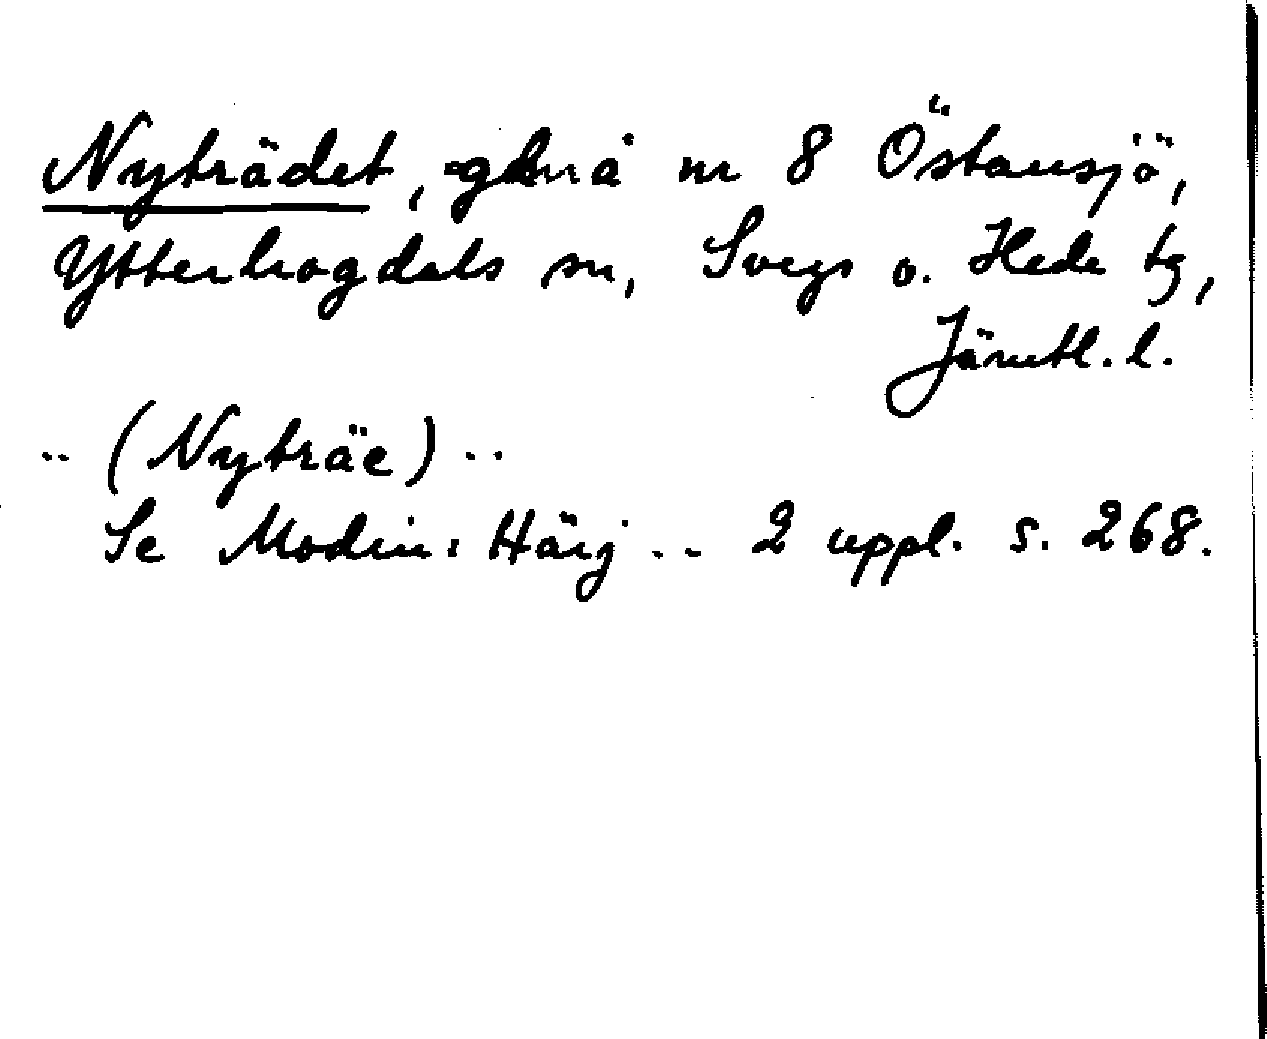 Nyträdet, gd på nr 8 Östansjö,
Ytterhogdals sn, Svegs o. Hede tg,
Jämtl. l.
.. (Nyträe) ..
Se Modin: Härj .. 2 uppl. s. 268.